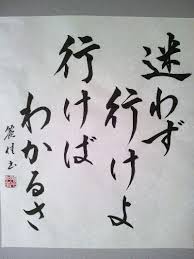 迷わず
行けよ
行けば
わかるさ